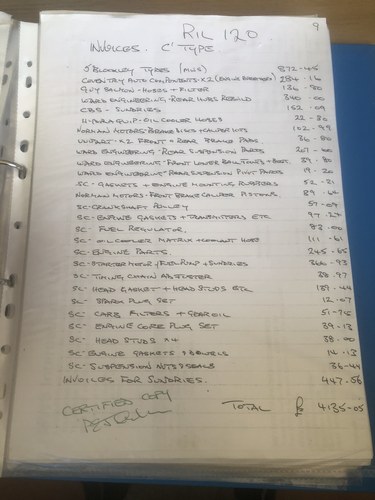 9
RIL 120
INVOICES. C' TYPE
BLOCKLEY TYRES (MUG) 872-45
COVENTRY AUTO COMPONENTS. X2 284-16
GUY SALMON - HOSES + FILTER 136-80
WARD ENGINEERING - REAR HUBS REBUILD 340-00
CBS - SUNDRIES 152-09
QUIP-OIL COOLER HOSES 22-80
NORMAN MOTORS BRAKE DISKS CALIPER KITS 102-99
UNIPART. X2 FRONT + REAR BRAKE PADS 36-80
WARD ENGINEERING - REAR SUSPENSION PARTS 201-00
WARD ENGINEERING - FRONT LOWER BALL JOINTS + 39-80
WARD ENGINEERING - REAR SUSPENSION PIVOT PARTS 19-20
SC- GASKETS + ENGINE MOUNTING RUBBERS 52-21
NORMAN MOTORS - FRONT BRAKE CALIPER PISTONS. 89-64
SC- CRANKSHAFT PULLEY 59-09
SC- ENGINE GASKETS + TRANSMITTERS ETC 97-24
SC- FUEL REGULATOR. 83-00
SC- OIL COOLER MATRIX + COOLANT HOSE 111-61
SC- ENGINE PARTS. 245-65
SC- STARTER MOTOR, FUEL PUMP + SUNDRIES 346-93
SC- TIMING CHAIN ADJUSTER 38-97
SC- HEAD GASKET + HEAD STUDS ETC 189-44
SC- SPARK PLUG SET 12-07
SC- CARB FILTERS + GEAR OIL 51-75
SC- ENGINE CORE PLUG SET 39-13
SC- HEAD STUDS X4 38-00
SC- ENGINE GASKETS + 14-13
SC- SUSPENSION NUTS & SEALS 36-44
INVOICES FOR SUNDRIES. 447-56
CERTIFIED COPY
TOTAL £ 4135-05